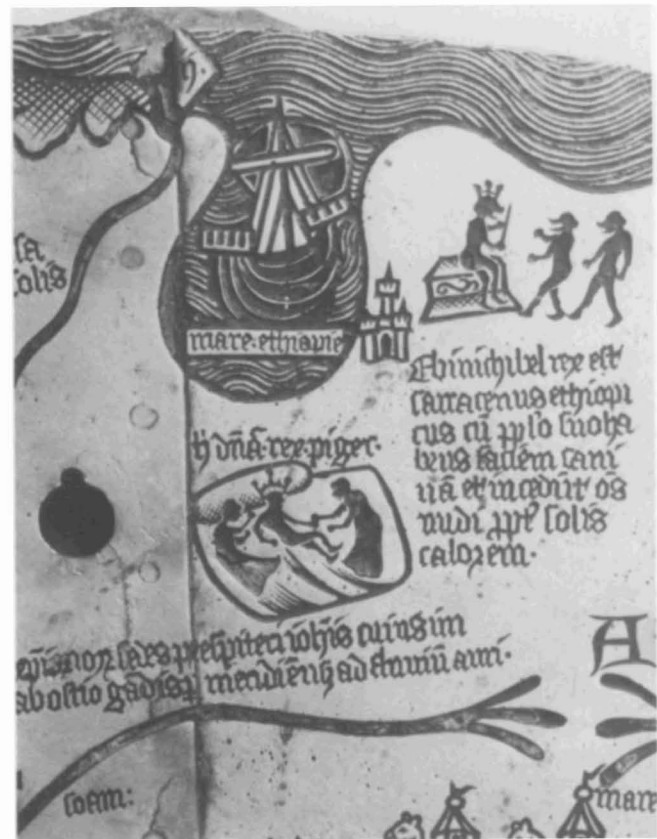 solis
mare·ethiopie
Ebinichibel rex est
sarracenus ethiopi
cus cū pplo suo ha
bens faciem cani
nā et incedūt os
nudi ppt solis
calorem·
h dnā·rex·piger·
sedes prespiteri iohis cuius im
ab ostio gadis p meridiem ad fluuiū auri·
A
soam:
mare